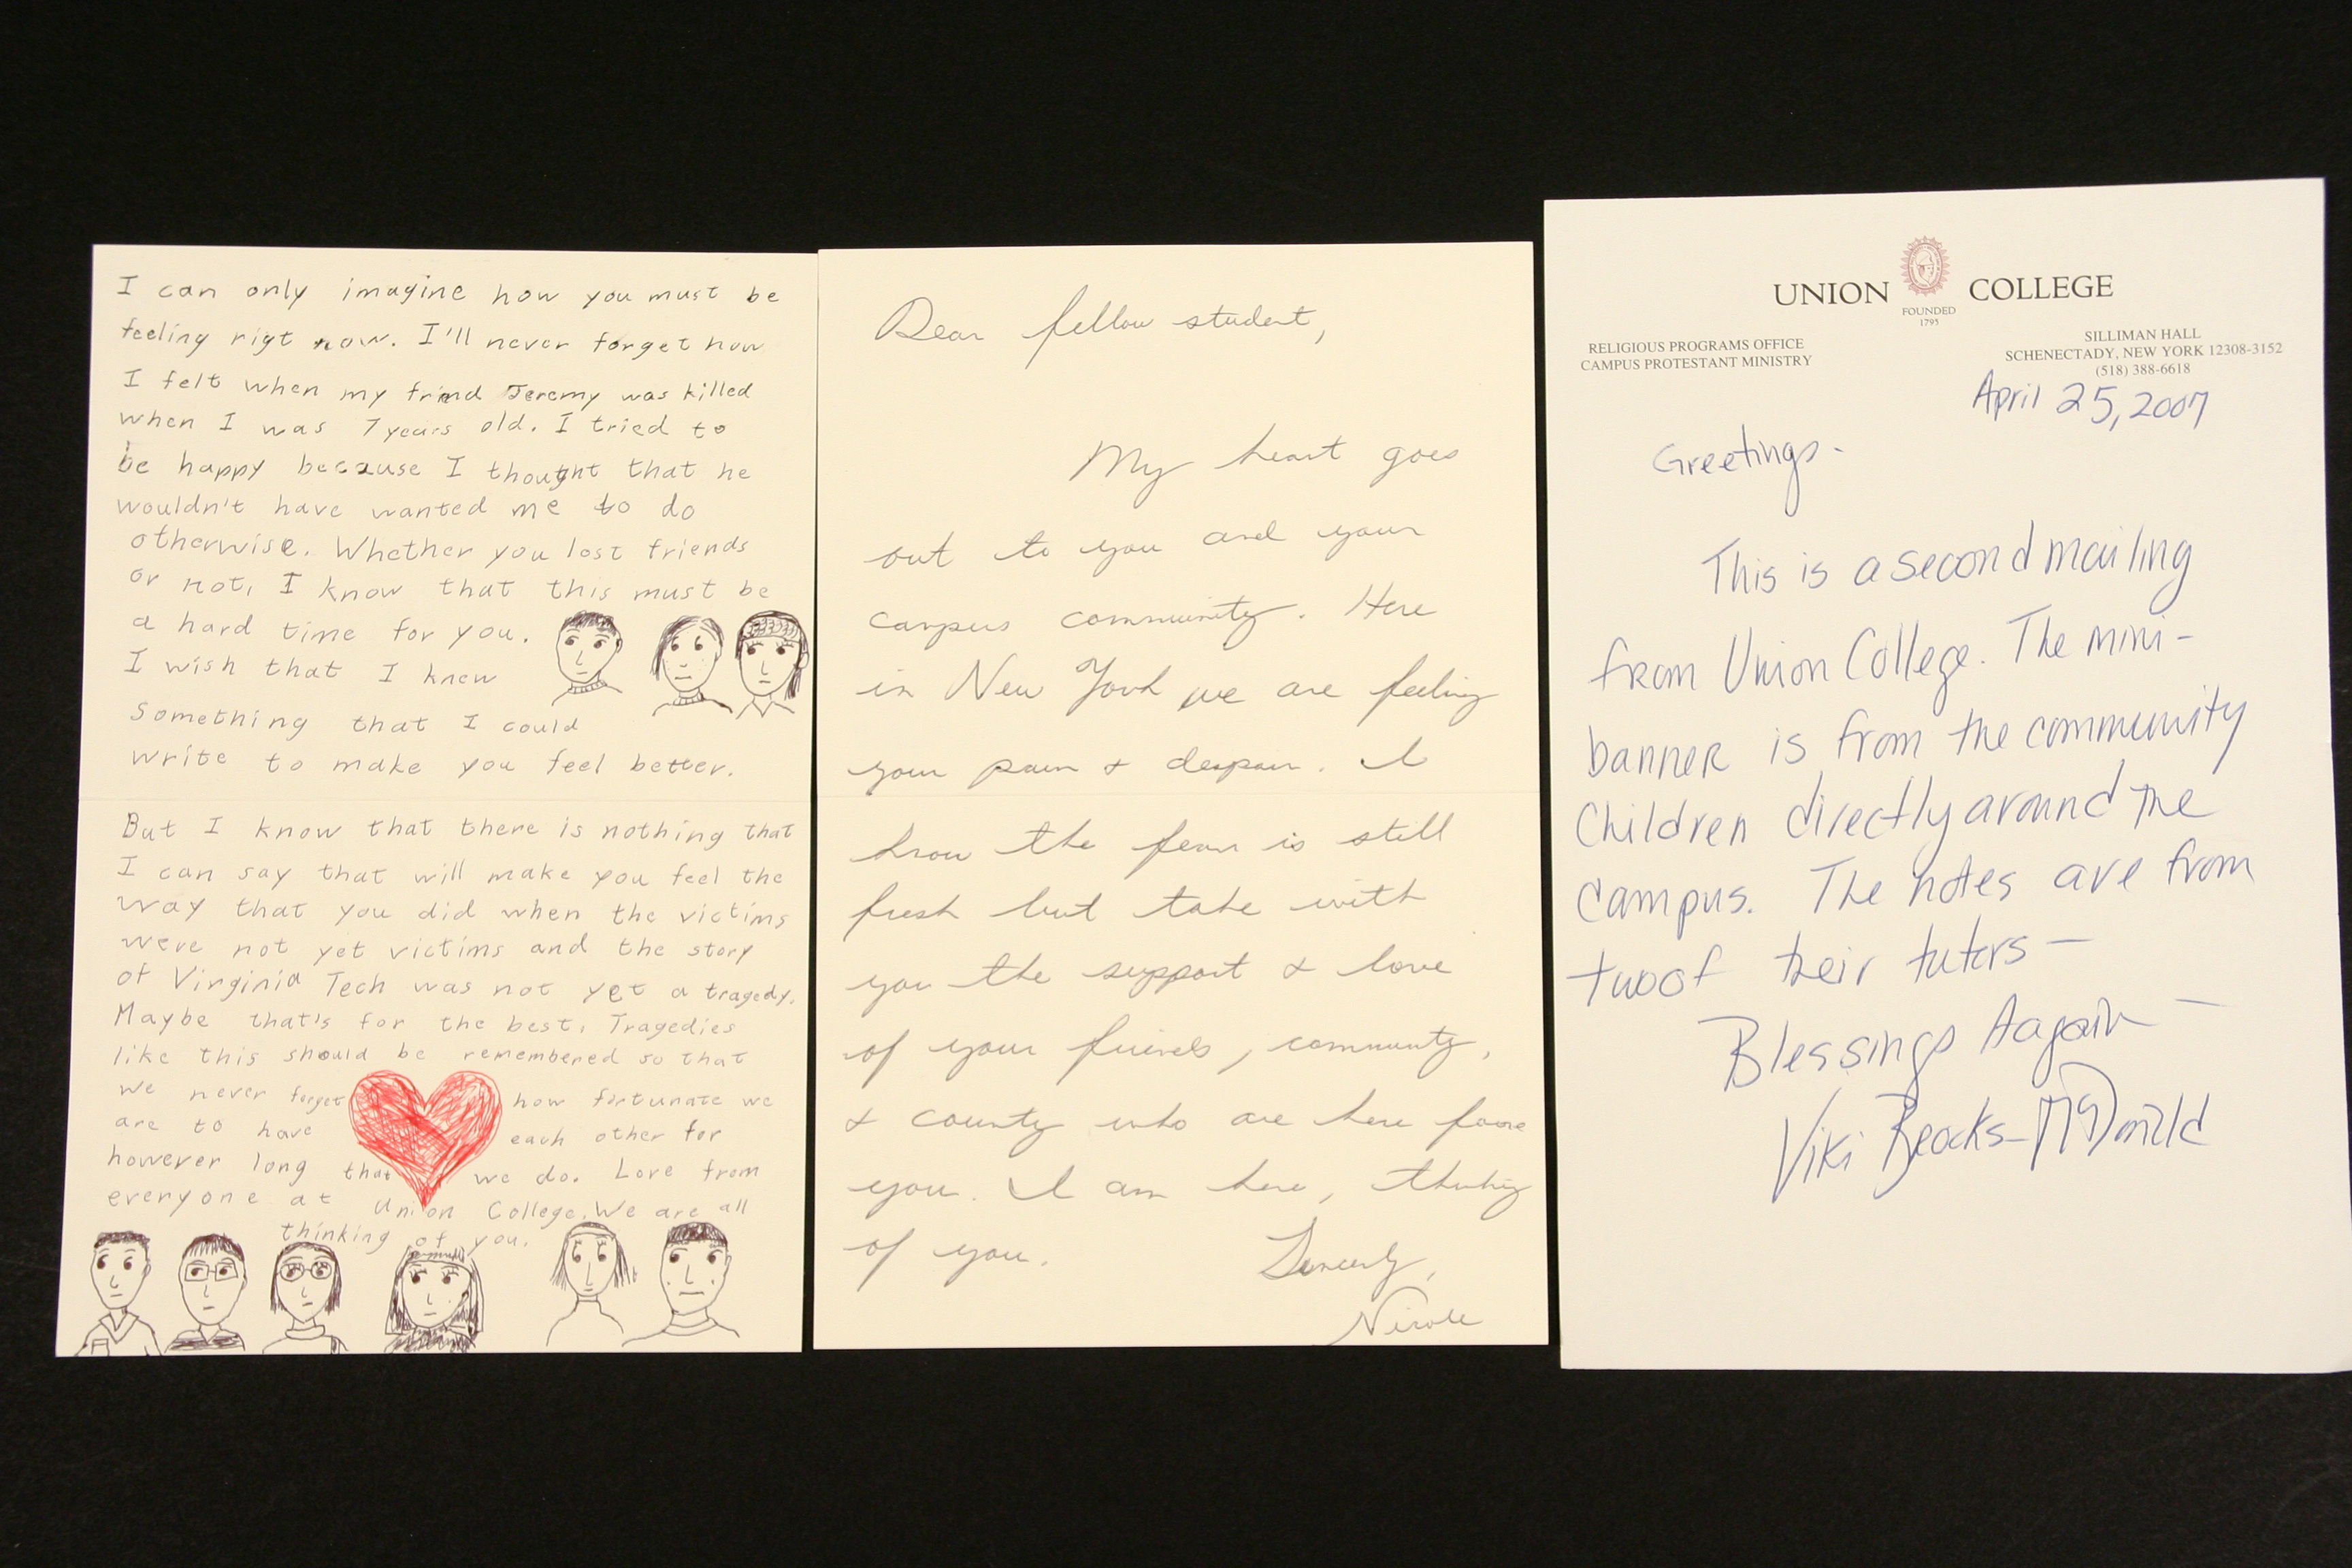 I can only imagine how you must be
feeling rigt now. I'll never forget how
I felt when my friend Jeremy was killed
when I was 7 years old. I tried to
be happy because I thought that he
wouldn't have wanted me to do
otherwise. Whether you lost friends
or not, I know that this must be
a hard time for you.
I wish that I knew
something that I could
write to make you feel better.
But I know that there is nothing that
I can say that will make you feel the
way that you did when the victims
were not yet victims and the story
of Virginia Tech was not yet a tragedy.
Maybe that's for the best. Tragedies
like this should be remembered so that
we never forget how fortunate we
are to have each other for
however long that we do. Love from
everyone at Union College. We are all
thinking of you.
Dear fellow student,
My heart goes
out to you and your
campus community. Here
in New York we are feeling
your pain & despair. I
know the fear is still
fresh but take with
you the support & love
of your friends, community,
& county who are here for
you. I am here, thinking
of you. Sincerly,
Nicole
UNION COLLEGE
FOUNDED
1795
RELIGIOUS PROGRAMS OFFICE
CAMPUS PROTESTANT MINISTRY
SILLIMAN HALL
SCHENECTADY, NEW YORK 12308-3152
(518) 388-6618
April 25, 2007
Greetings.
This is a second mailing
from Union College. The mini-
banner is from the community
children directly around the
campus. The notes are from
two of their tutors —
Blessings Aagain —
Viki Brooks-McDonald